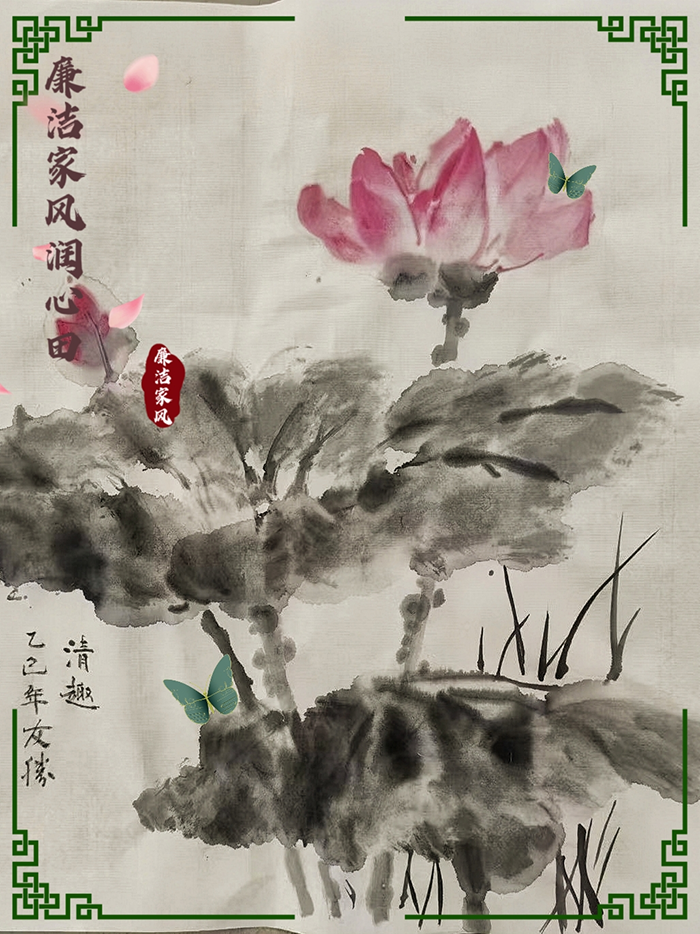 廉洁家风润心田
廉洁家风
清趣
乙巳年友勝